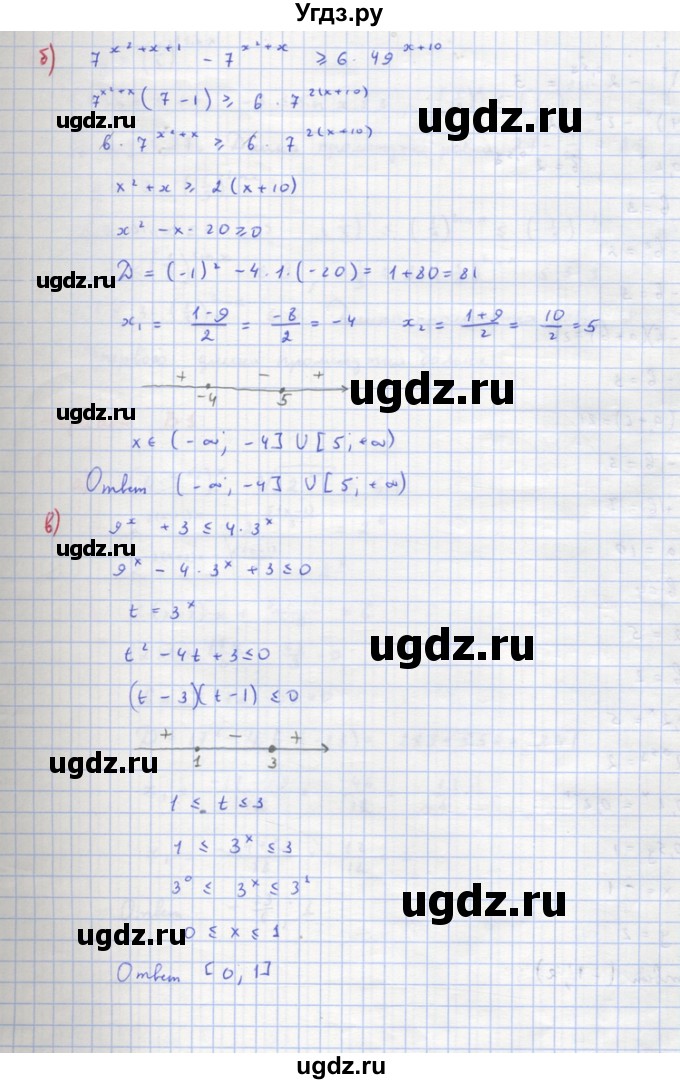 Угдз.ру
б) 7^(x²+x+1) - 7^(x²+x) ≥ 6 · 49^(x+10)
7^(x²+x) (7-1) ≥ 6 · 7^(2(x+10))
ugdz.ru
ugdz.ru
6 · 7^(x²+x) ≥ 6 · 7^(2(x+10))
x² + x ≥ 2(x+10)
x² - x - 20 ≥ 0
D = (-1)² - 4·1·(-20) = 1+80 = 81
ugdz.ru
x₁ = (1-9)/2 = -8/2 = -4 x₂ = (1+9)/2 = 10/2 = 5
+ - +
-4 5
ugdz.ru
ugdz.ru
x ∈ (-∞; -4] ∪ [5; +∞)
Ответ (-∞; -4] ∪ [5; +∞)
в) 9^x + 3 ≤ 4 · 3^x
ugdz.ru
9^x - 4 · 3^x + 3 ≤ 0
t = 3^x
t² - 4t + 3 ≤ 0
ugdz.ru
(t - 3)(t - 1) ≤ 0
+ - +
1 3
ugdz.ru
1 ≤ t ≤ 3
1 ≤ 3^x ≤ 3
3^0 ≤ 3^x ≤ 3^1
ugdz.ru
0 ≤ x ≤ 1
ugdz.ru
Ответ [0, 1]
ugdz.ru